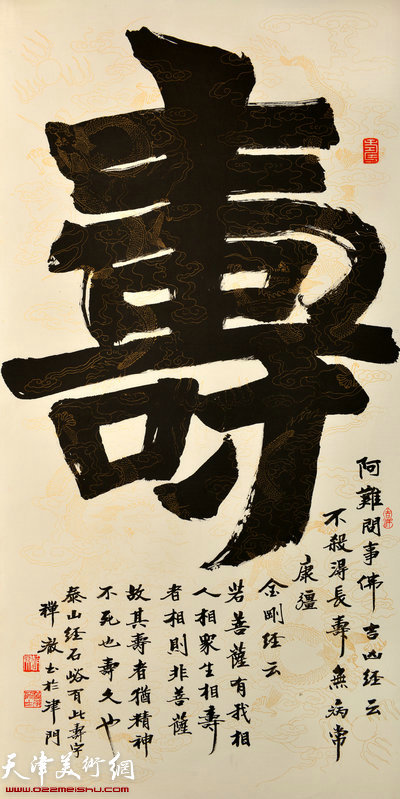 壽
阿難問事佛吉凶經云
不殺得長壽無病常
康彊
金剛經云
若菩薩有我相
人相眾生相壽
者相則非菩薩
故其壽者猶精神
不死也壽久也
泰山經石峪有此壽字
於津門
天津美術網
www.022meishu.com